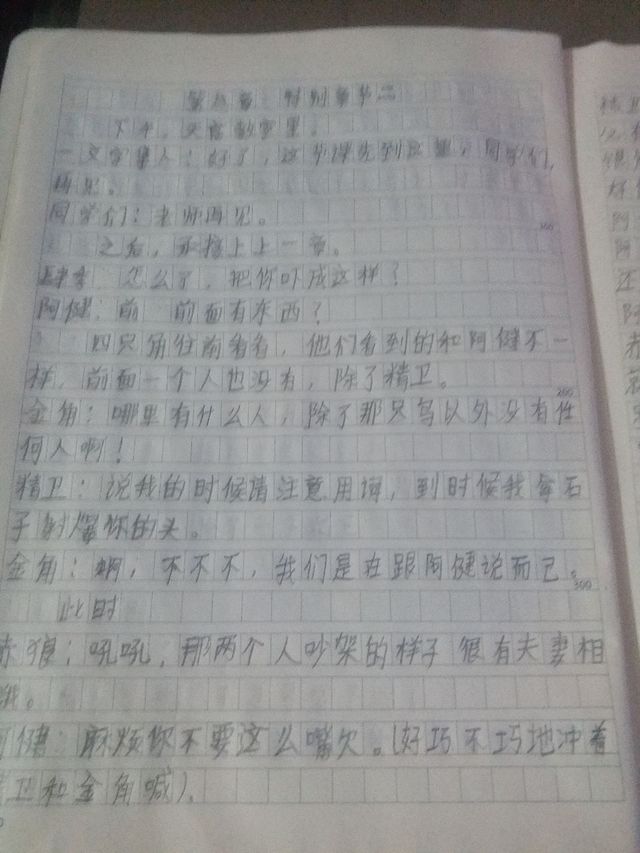 第八章：特别章节
下午，天宫教室里。
文字集人：好了，这节课先到这里，同学们，
再见。
同学们：老师再见。
之后，承接上上一章。
怎么了，把你吓成这样？
阿健：前 前面有东西？
四只角往前看看，他们看到的和阿健不一
样，前面一个人也没有，除了精卫。
金角：哪里有什么人，除了那只鸟以外没有任
何人啊！
精卫：说我的时候请注意用词，到时候我拿石
子射爆你的头。
金角：啊，不不不，我们是在跟阿健说而已。
此时
赤狼：吼吼，那两个人吵架的样子很有夫妻相
哦。
阿健：麻烦你不要这么嘴欠。（好巧不巧地冲着
精卫和金角喊）.
100
200
300